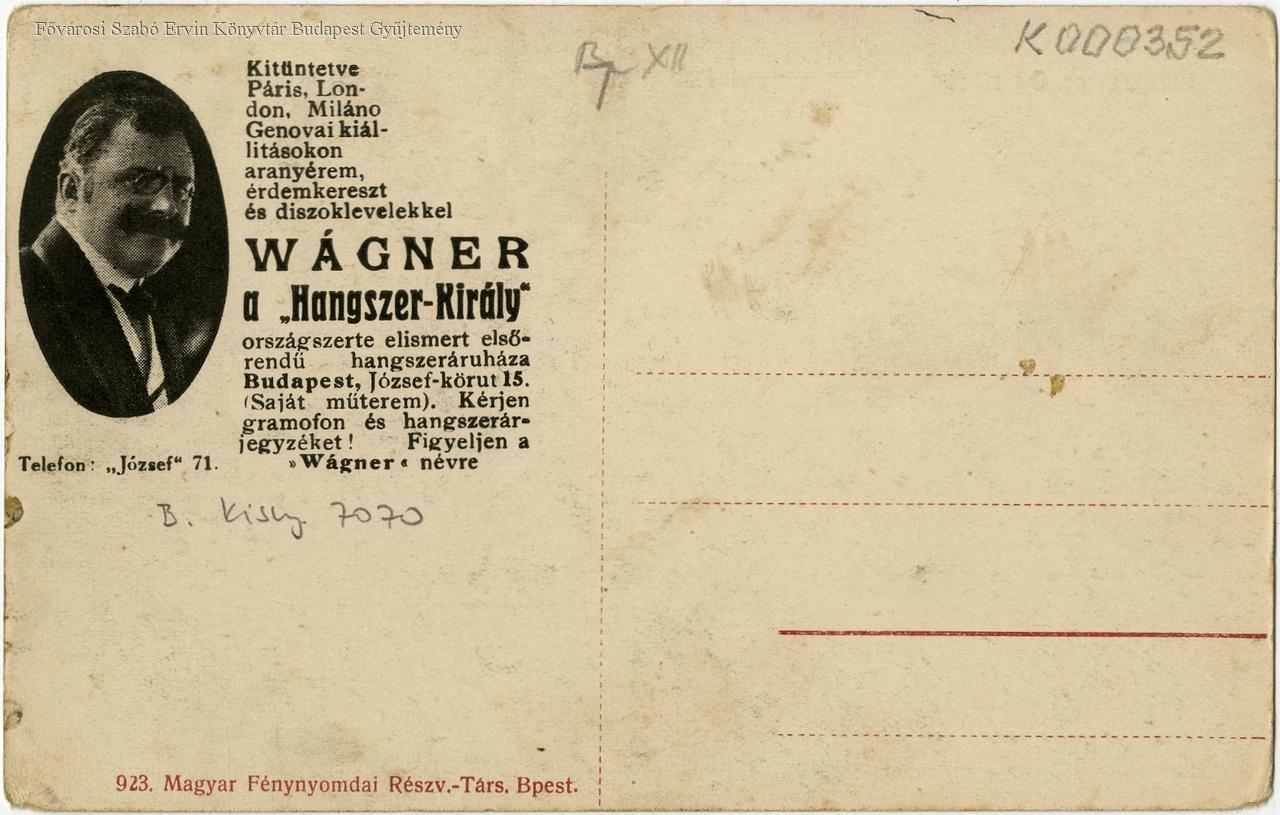 Fővárosi Szabó Ervin Könyvtár Budapest Gyűjtemény
K000352
Bp XII
Kitüntetve
Páris, Lon-
don, Miláno
Genovai kiál-
litásokon
aranyérem,
érdemkereszt
és diszoklevelekkel
WÁGNER
a „Hangszer-Király“
országszerte elismert első-
rendű hangszeráruháza
Budapest, József-körut 15.
(Saját műterem). Kérjen
gramofon és hangszerár-
jegyzéket! Figyeljen a
»Wágner« névre
Telefon: „József“ 71.
B. 7070
923. Magyar Fénynyomdai Részv.-Társ. Bpest.